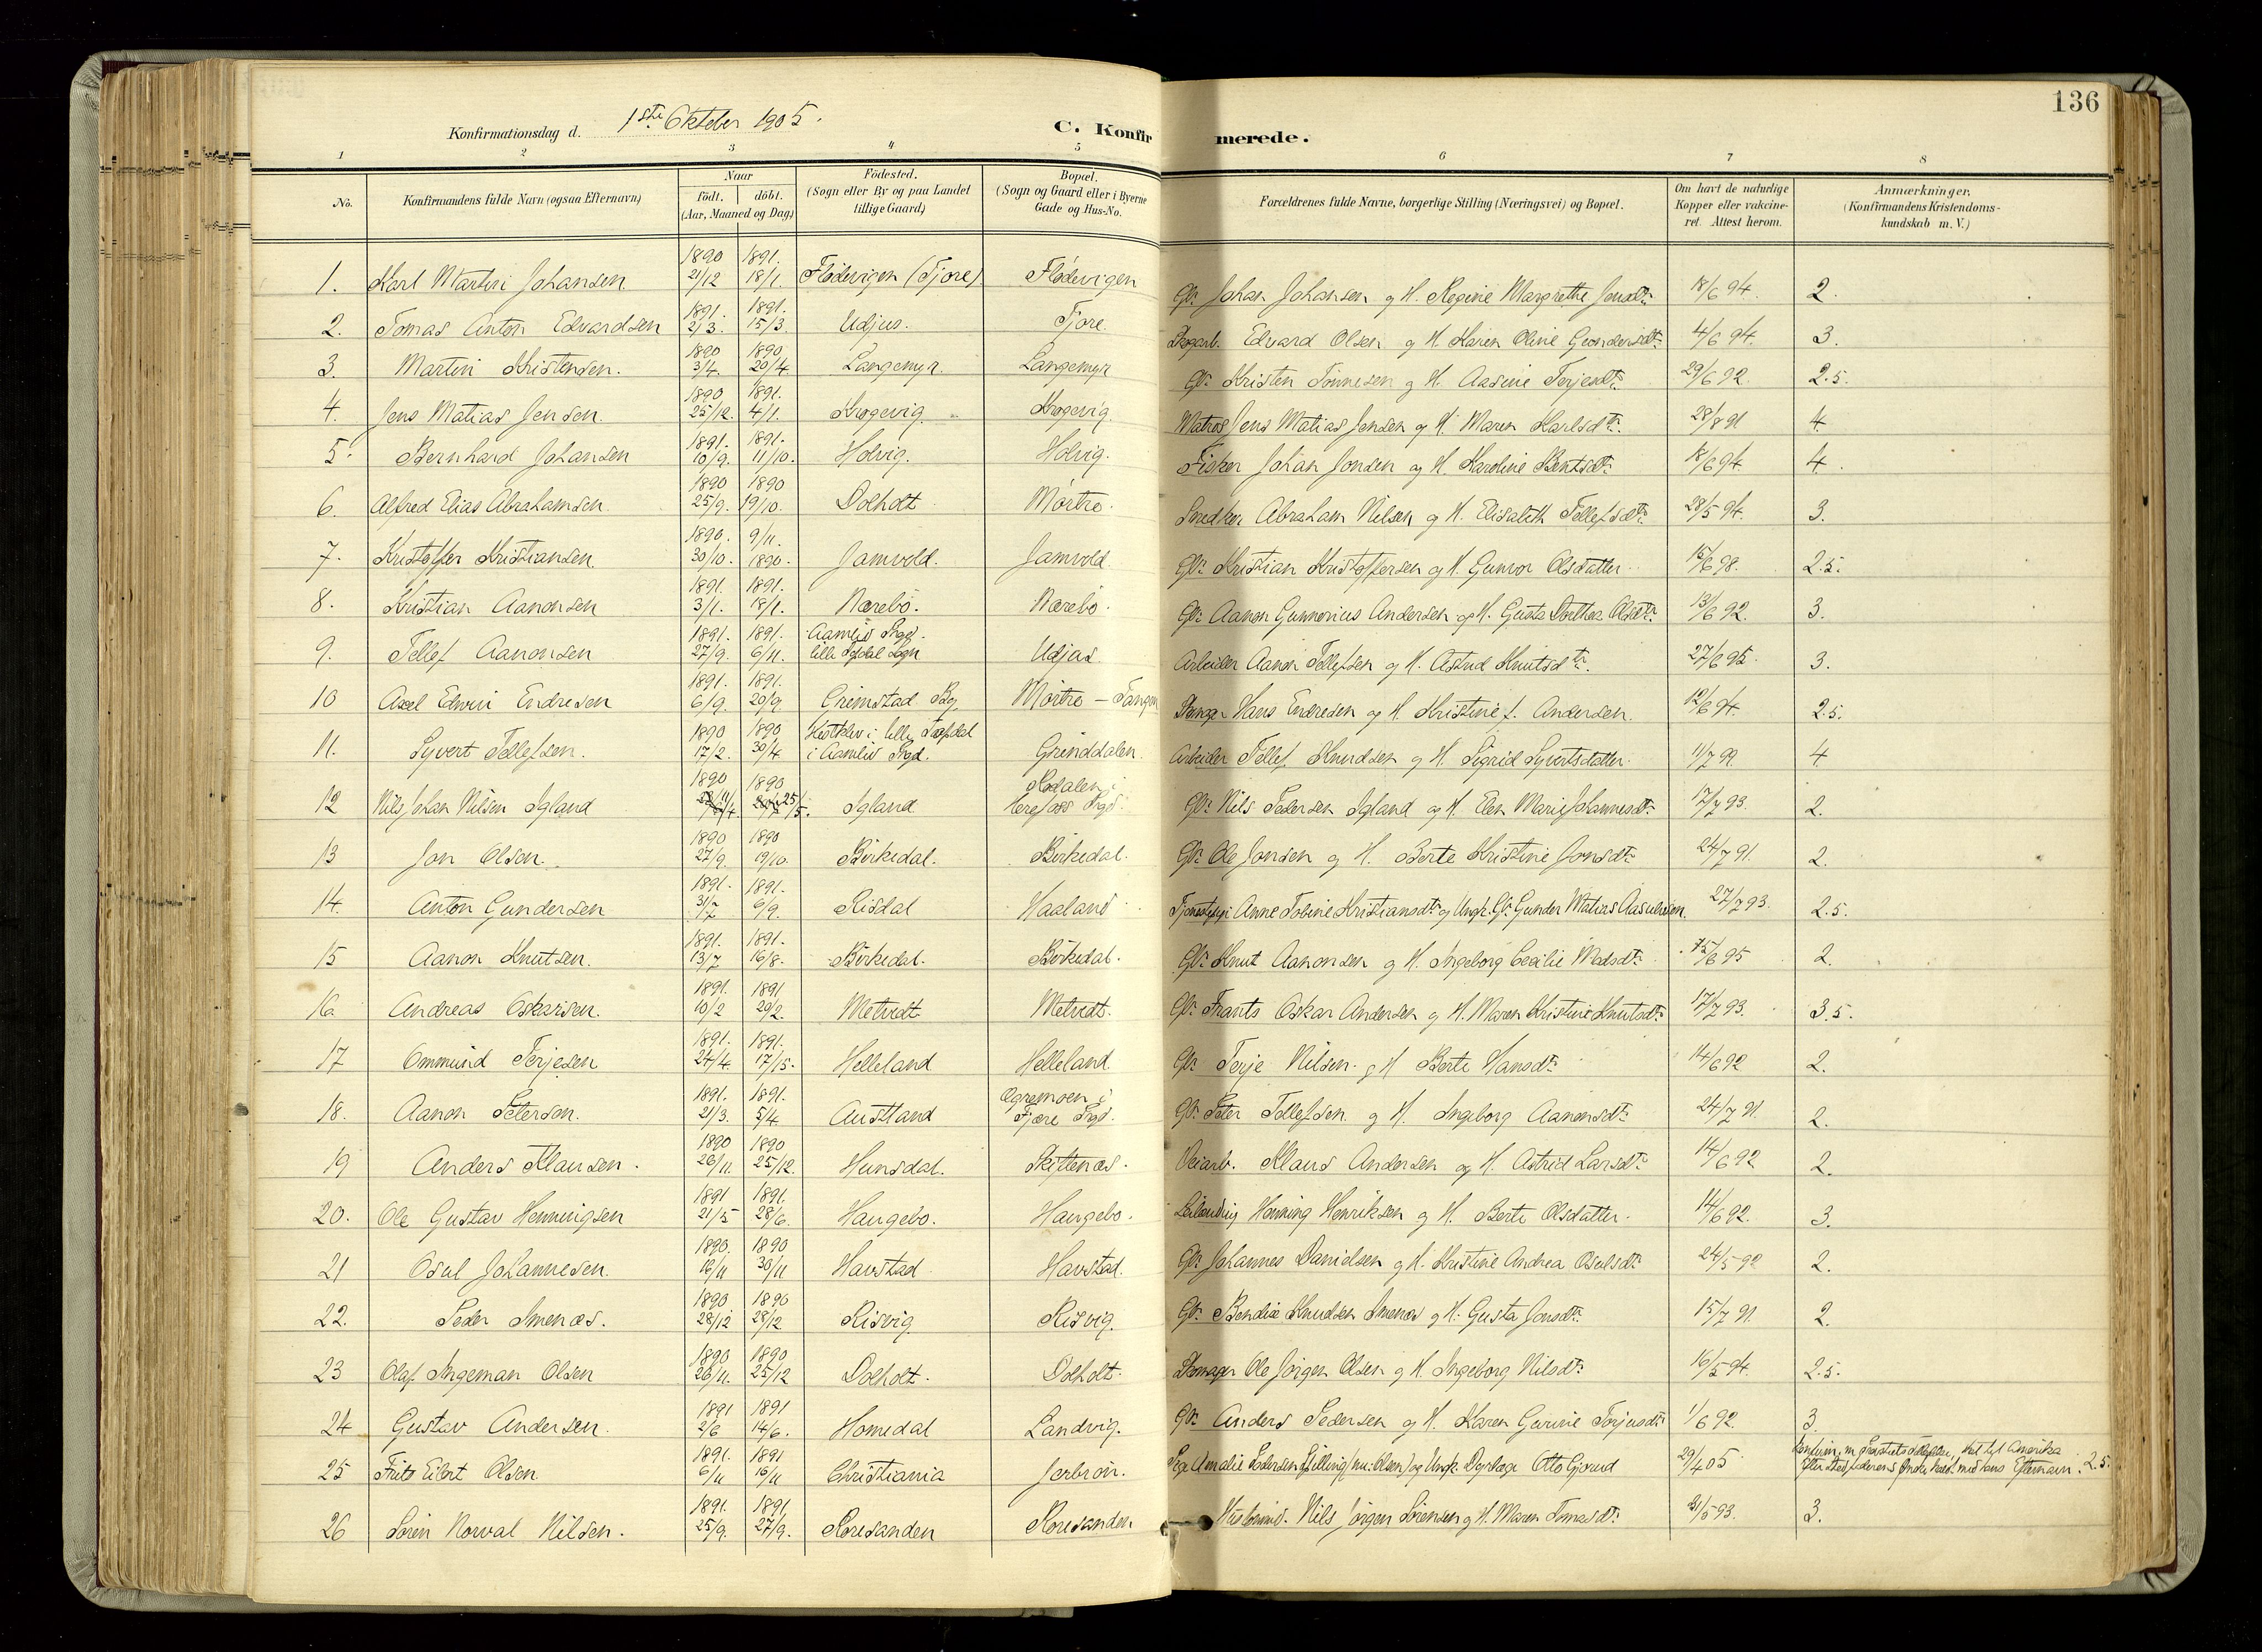 136
Konfirmationsdag d. 1ste Oktober 1905.
C. Konfirmerede.
1 2 3 4 5 6 7 8
No. Konfirmandens fulde Navn (ogsaa Efternavn) Naar født. døbt. (Aar, Maaned og Dag) Fødested. (Sogn eller By og paa Landet tillige Gaard) Bopæl. (Sogn og Gaard eller i Byerne Gade og Hus-No. Forældrenes fulde Navne, borgerlige Stilling (Næringsvei) og Bopæl. Om havt de naturlige Kopper eller vakcineret. Attest herom. Anmærkninger. (Konfirmandens Kristendomskundskab m. V.)
1. Karl Martin Johansen 1890 21/12 1891. 18/1. Flødevigen (Fjære) Flødevigen Gbr. Johan Johansen og H. Regine Margrethe Jensdtr. 18/6 94. 2.
2. Tomas Anton Edvardsen 1891. 2/3. 1891. 15/3. Udjus. Fjære. Edvard Olsen og H. Karen Oline Gundersdtr. 4/6 94. 3.
3. Martin Kristensen. 1890 3/4. 1890 20/4. Langemyr. Langemyr Gbr. Kristen Tønnesen og H. Aasine Terjesdtr. 29/6 92. 2.5.
4. Jens Matias Jensen. 1890 25/12. 1891. 4/1. Krogevig. Krogevig. Matros Jens Matias Jensen og H. Maren Karlsdtr. 28/8 91 4.
5. Bernhard Johansen 1891. 10/9. 1891. 11/10. Holvig. Holvig. Fisker Johan Jonsen og H. Karoline Bentsdtr. 18/6 94. 4.
6. Alfred Elias Abrahamsen. 1890 25/9. 1890 19/10. Dolholt Mørtre. Snedker Abraham Nilsen og H. Elisabeth Tellefsdtr. 28/5 94. 3.
7. Kristoffer Kristiansen. 1890. 30/10. 9/11. 1890. Jamvold. Jamvold. Gbr. Kristian Kristoffersen og H. Gunvor Olsdatter. 15/6 98. 2.5.
8. Kristian Aanonsen 1891. 3/1. 1891. 18/1. Nærebø. Nærebø. Gbr. Aanon Gunnerius Andersen og H. Gusta Dorthea Olsdtr. 13/6 92. 3.
9. Tellef Aanonsen 1891. 27/9. 1891. 6/11. Aamlid Prgd. Udjus. Arbeider Aanon Tellefsen og H. Astrid Knutsdtr. 27/6 95. 3.
10 Axel Edvin Endresen 1891. 6/9. 1891. 20/9. Grimstad By. Mørtre - Tangen Hans Endresen og H. Kristine f. Andersen. 12/6 94. 2.5.
11. Syvert Tellefsen. 1890 17/2. 1890 30/4 i lille Topdal i Aamlid Prgd. Grinddalen. Arbeider Tellef Knudsen og H. Sigrid Syvertsdatter. 11/7 99. 4
12 Nils Johan Nilsen Igland 1890 1890 25/5. Igland. Rodalen i Herefoss Prgd. Gbr. Nils Pedersen Igland og H. Elen Marie Johannesdtr. 17/7 93. 2.
13 Jon Olsen. 1890 27/9. 1890 19/10. Birkedal. Birkedal. Gbr. Ole Jonsen og H. Berte Kristine Jonsdtr. 24/7 91. 2.
14. Anton Gundersen 1891. 31/7 1891. 6/9. Risdal Haaland Tjenestepige Anne Tobine Kristiansdtr. og Ungk. Gbr. Gunder Matias Aasulvsen. 27/7 93. 2.5.
15 Aanon Knutsen. 1891. 13/7 1891. 16/8. Birkedal. Birkedal. Gbr. Knut Aanonsen og H. Ingeborg Cecilie Madsdtr. 15/6 95 2.
16. Andreas Oskarsen. 1891. 10/2 1891 20/2. Metvedt Metvedt. Gbr. Frants Oskar Andersen og H. Maren Kristine Knutsdtr. 17/7 93. 3.5.
17 Ommund Terjesen 1891. 24/4. 1891. 17/5. Helleland Helleland. Gbr. Terje Nilsen og H. Berte Hansdtr. 14/6 92 2.
18. Aanon Petersen. 1891. 21/3. 1891. 5/4. Austland Ogremoen i Fjære Prgd. Gbr. Peter Tellefsen og H. Ingeborg Aanonsdtr. 24/7 91. 2.
19 Anders Klausen. 1890 26/11. 1890 25/12. Hunsdal. Skiftenes. Veiarb. Klaus Andersen og H. Astrid Larsdtr. 14/6 92 2.
20. Ole Gustav Henningsen 1891 21/5 1891. 28/6. Haugebo. Haugebo. Leilænding Henning Henriksen og H. Berte Olsdatter. 14/6 92. 3.
21 Osul Johannesen. 1890. 16/11 1890 30/11 Havstad Havstad. Gbr. Johannes Danielsen og H. Kristine Andrea Osulsdtr. 24/5 92 2.
22. Peder Smenæs. 1890 28/12 1890 28/12 Risvig. Risvig. Gbr. Bendix Knudsen Smenæs og H. Gusta Jonsdtr. 15/7 91. 2.
23 Olaf Ingeman Olsen 1890 26/11. 1890 25/12 Dolholt. Dolholt. Ole Jørgen Olsen og H. Ingeborg Nilsdtr. 16/5 94. 2.5.
24 Gustav Andersen. 1891 2/6 1891 14/6. Homedal Landvig. Gbr. Anders Pedersen og H. Karen Gurine Terjesdtr. 1/6 92. 3
25 Frits Eilert Olsen 1891. 6/11 1891 16/11 Christiania Jerbrøn. Pige Amalie Pedersen (nu: Olsen) og Ungk. Dyrlæge Otto Gjorud 29/4 05. Amerika Efter Stedfaderens Ønske med hans Efternavn. 2.5.
26 Sørin Norval Nilsen. 1891. 25/9. 1891 27/9. Roresanden Roresanden Nils Jørgen Sørensen og H. Maren Tomasdtr. 31/5 93. 3.